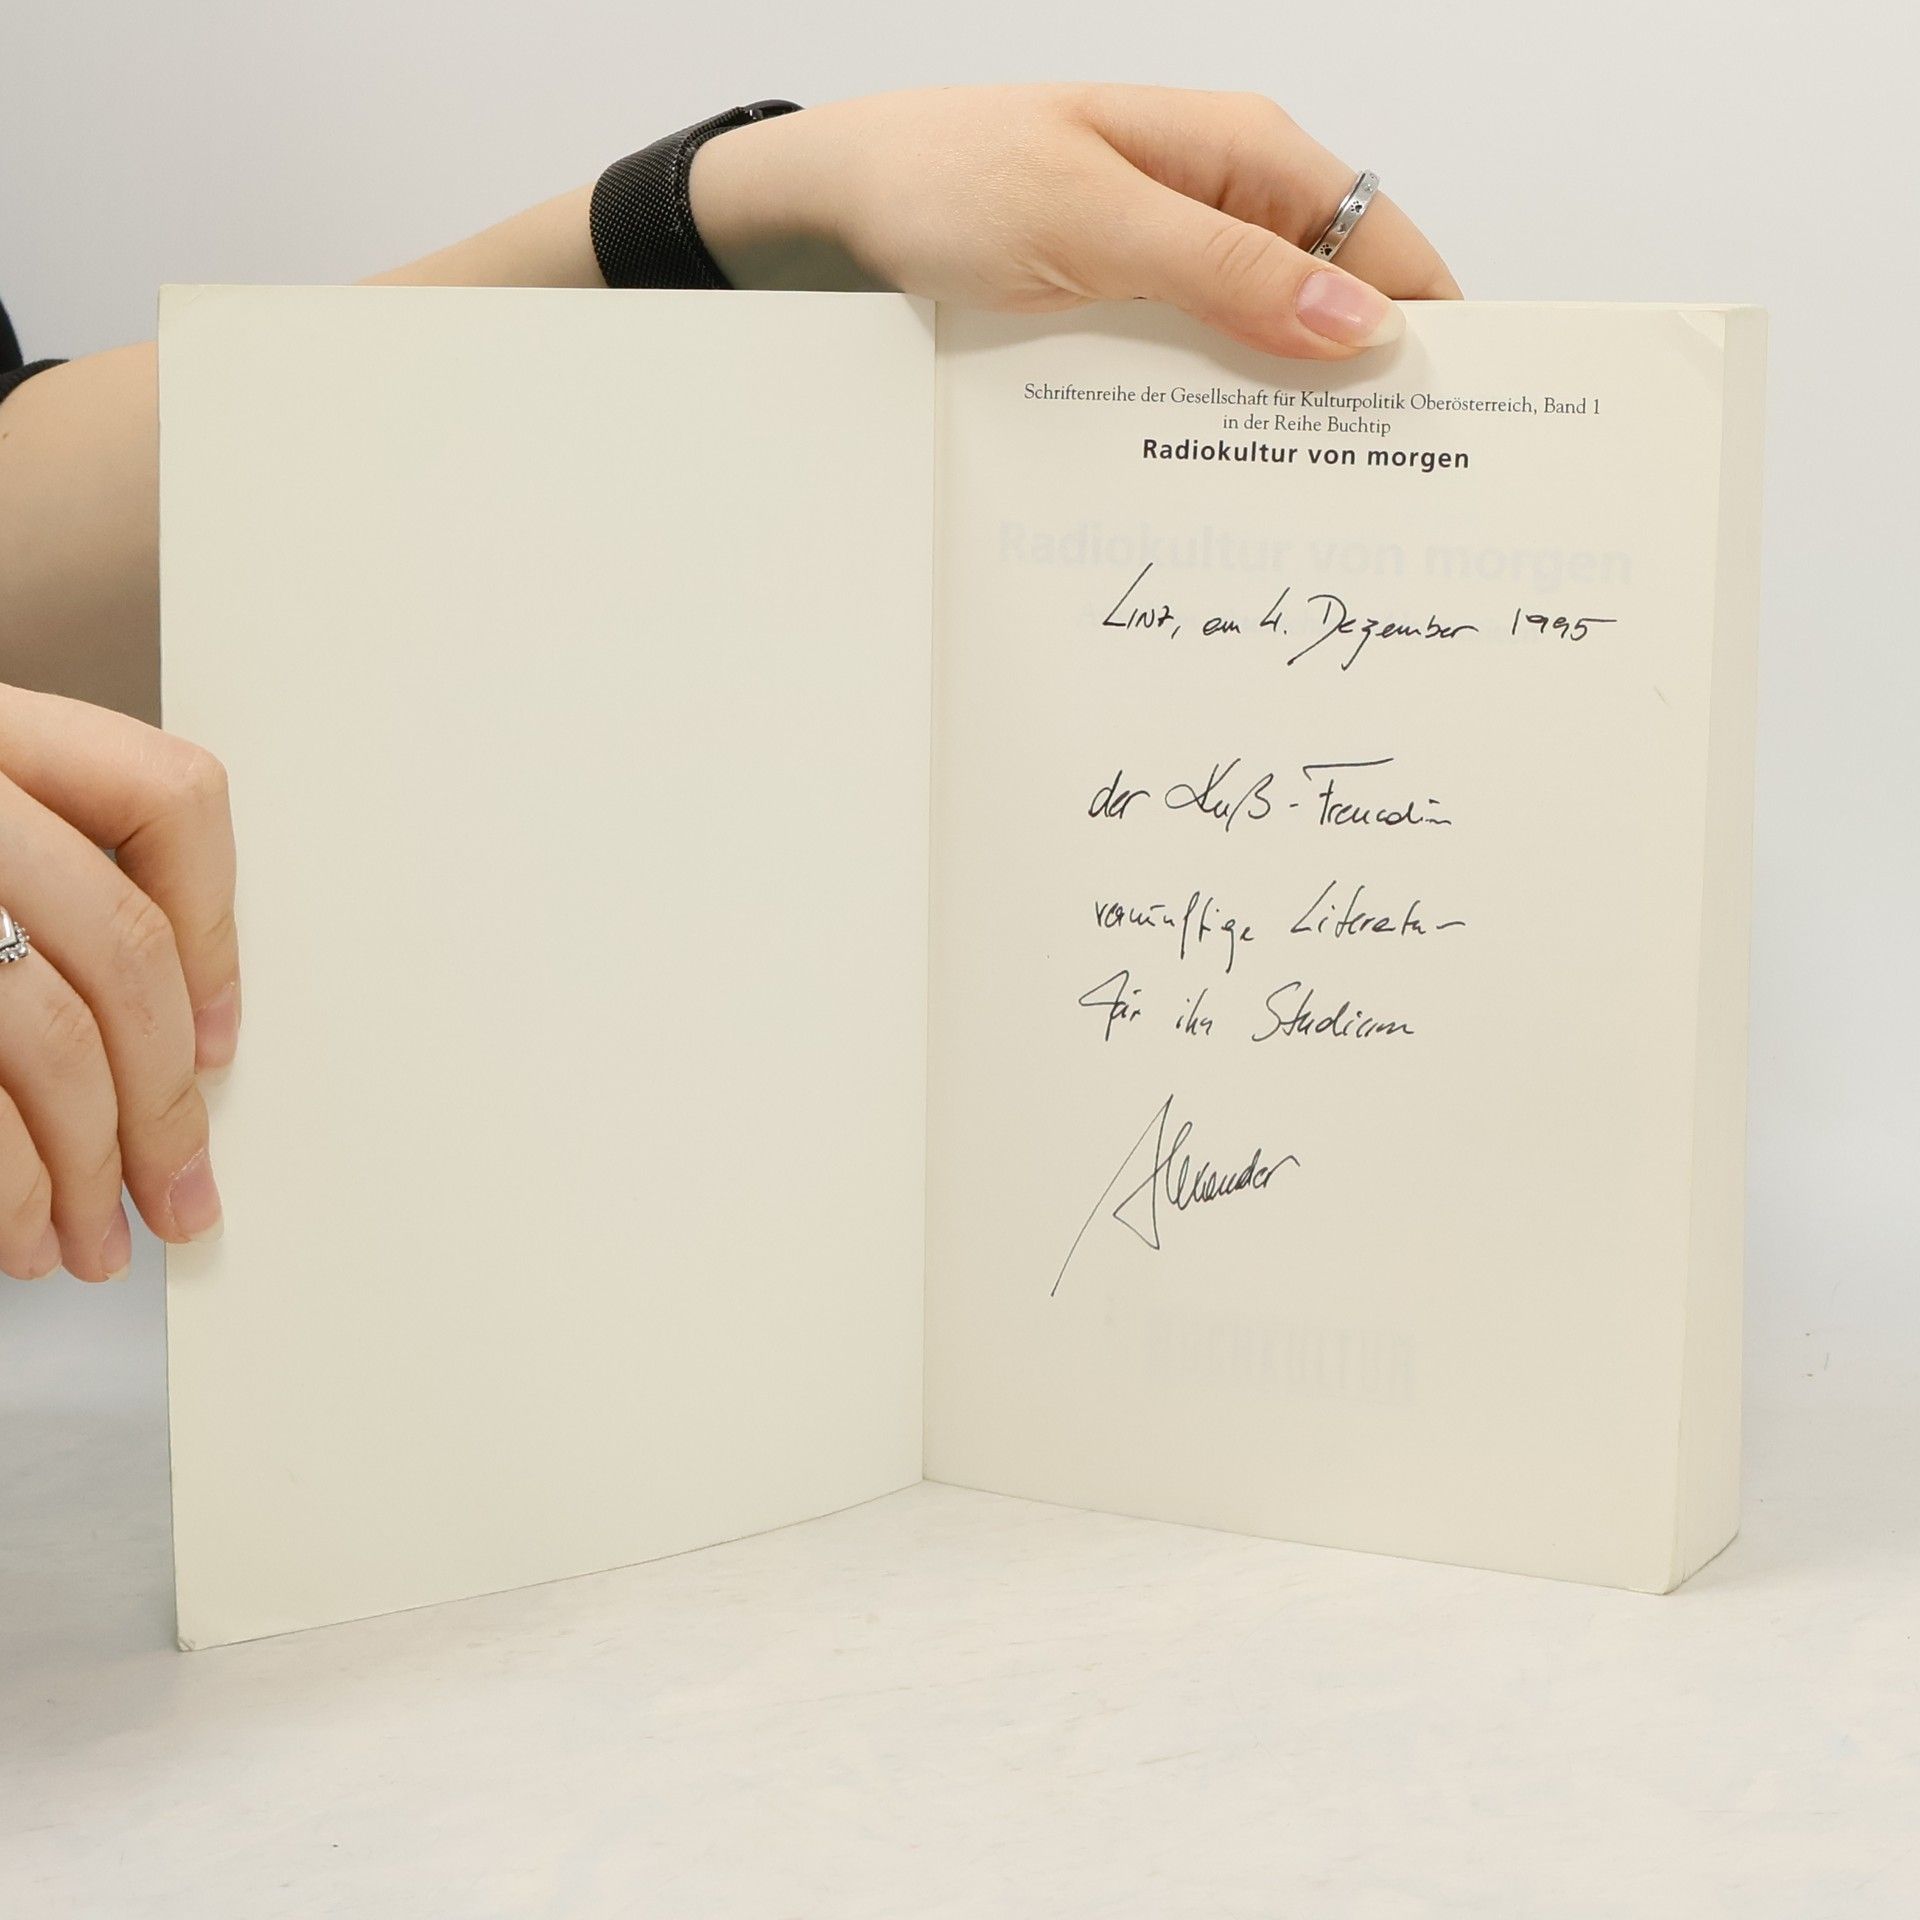 Schriftenreihe der Gesellschaft für Kulturpolitik Oberösterreich, Band 1
in der Reihe Buchtip
Radiokultur von morgen
Radiokultur von morgen
Linz, am 4. Dezember 1995
der Kuß-Freundin
vernünftige Literatur
für ihr Studium
Alexander
BUCHKULTUR